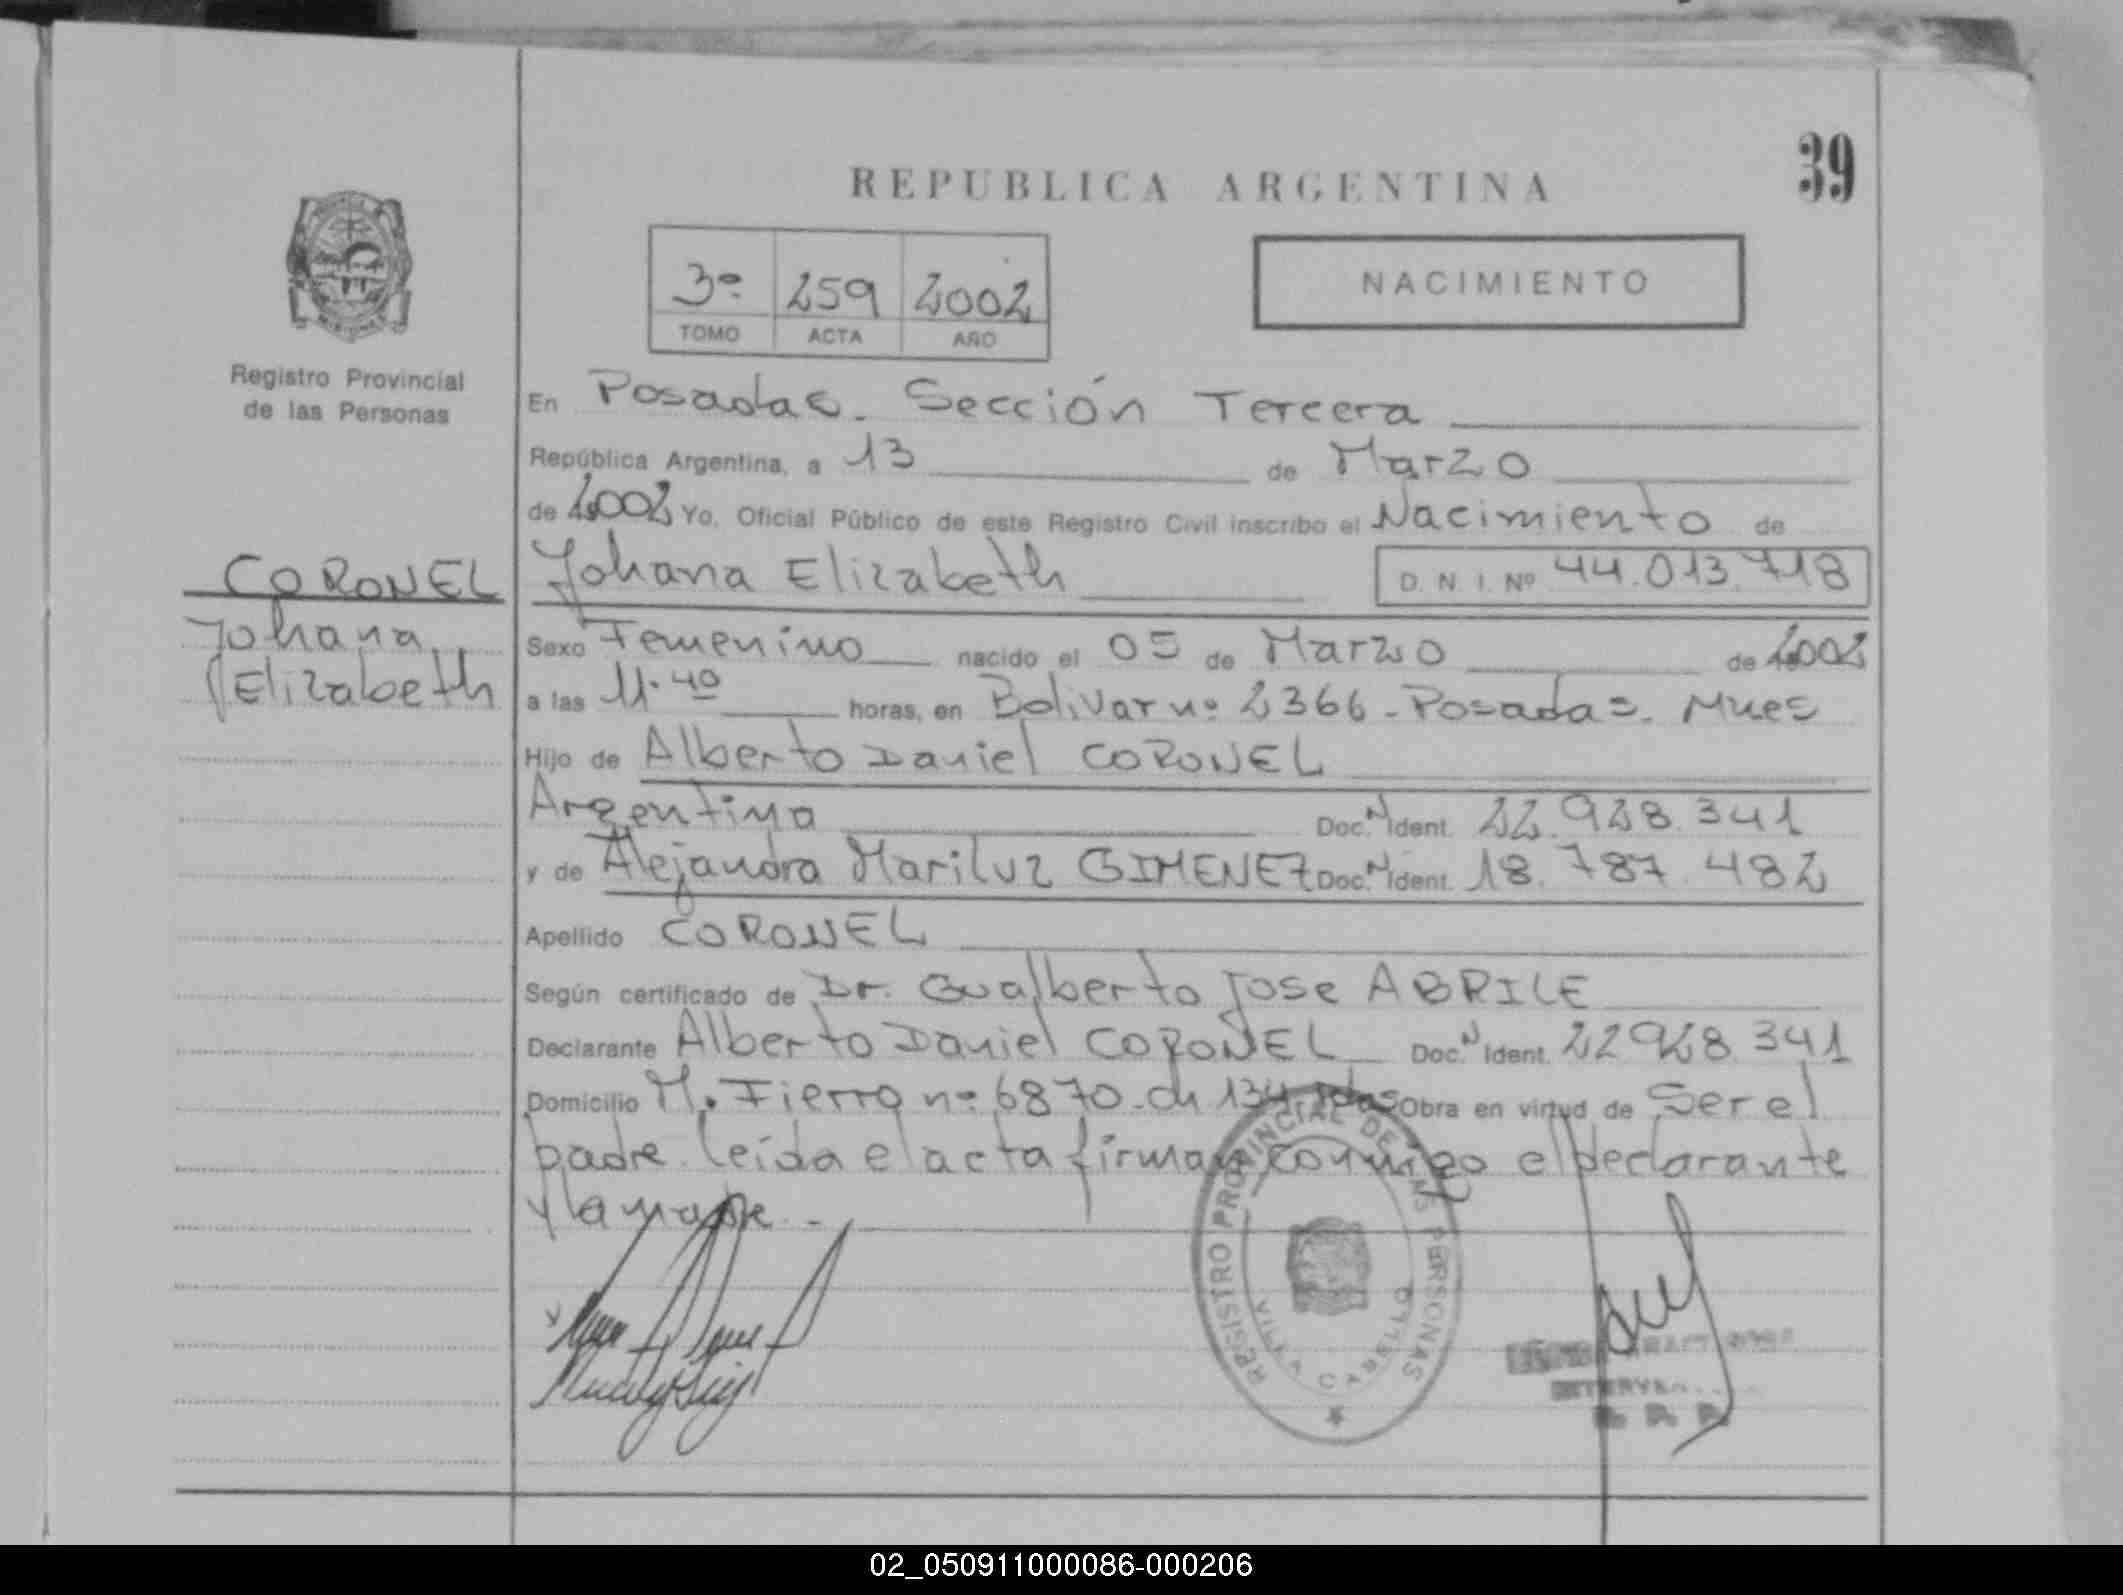 39
REPUBLICA ARGENTINA
3º 259 2002
TOMO ACTA AÑO
NACIMIENTO
Registro Provincial
de las Personas
CORONEL
Johana
Elizabeth
En Posadas. Sección Tercera
República Argentina, a 13 de Marzo
de 2002 Yo, Oficial Público de este Registro Civil inscribo el Nacimiento de
Johana Elizabeth D. N. I. Nº 44.013.718
Sexo Femenino nacido el 05 de Marzo de 2002
a las 11.40 horas, en Bolivar nº 2366 - Posadas. Mnes
Hijo de Alberto Daniel CORONEL
Argentino Doc. N Ident. 22.928.341
y de Alejandra Mariluz GIMENEZ Doc. N Ident. 18.787.482
Apellido CORONEL
Según certificado de Dr. Gualberto Jose ABRILE
Declarante Alberto Daniel CORONEL Doc. N Ident. 22928.341
Domicilio M. Fierro nº 6870 - ch 134 Pdas Obra en virtud de Ser el
padre. leída el acta firman conmigo el declarante
y la madre. -
REGISTRO PROVINCIAL DE LAS PERSONAS
VILLA CABELLO
R. P. P.
02_050911000086-000206